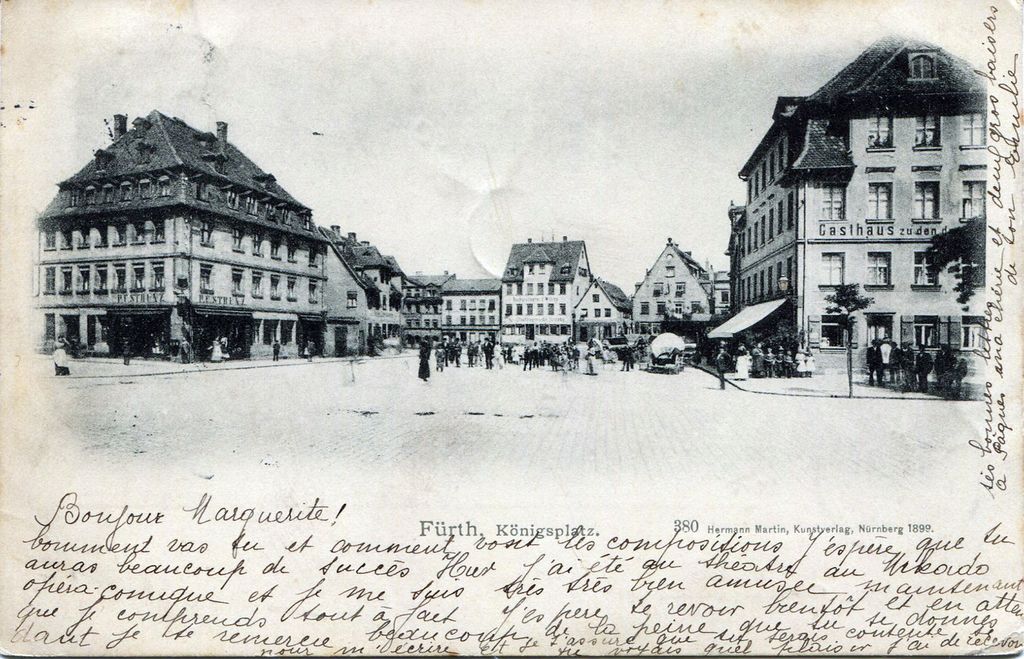 P. F. STREIT
P. F. STREIT
Gasthaus zu den d
Fürth. Königsplatz.
380 Hermann Martin, Kunstverlag, Nürnberg 1899.
Bonjour Marguerite!
Comment vas tu et comment vont tes compositions j'espère que tu
auras beaucoup de succès Hier j'ai été au théatre au Mikado
opéra-comique et je me suis très très bien amusée maintenant
que je comprends tout à fait j'espère te revoir bientôt et en atten
dant je te remercie beaucoup de la peine que tu te donnes
pour m'écrire et je t'assure que tu serais contente si
tu voyais quel plaisir j'ai de recevoir
tes bonnes lettres et
à Pâques ma chère et demi gros baisers
de ton Emilie